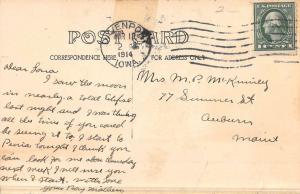 POST CARD
CORRESPONDENCE HERE
FOR ADDRESS ONLY
DAVENPORT
1914
IOWA
1 CENT 1
Dear Lona
I saw the moon
in nearly a total Eclipse
last night and I was thinking
all the time if you could
be seeing it to I start to
Peoria tonight I think you
can look for me about Sunday
next week I will miss you
when I start. with love
Mrs M. P. McKinley
77 Summer St
Auburn
Maine